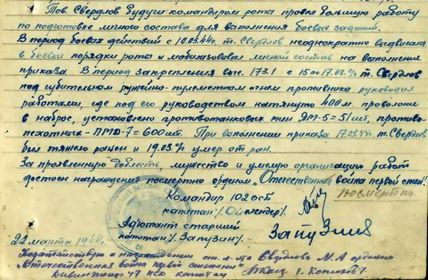 Тов. Свердлов будучи командиром роты провел большую работу
по подготовке личного состава для выполнения боевых заданий.
В период боевых действий с 10.03.44г. т. Свердлов неоднократно выдвигался
в боевые порядки роты и мобилизовал личный состав на выполнение
приказа. В период закрепления выс. 173.1 с 15 по 17.03.44г. т. Свердлов
под губительным ружейно-пулеметным огнем противника руководил
работами, где под его руководством натянуто 400 м. проволоки
в наброс, установлено противотанковых мин ЯМ-5=51 шт, противо-
пехотных-ПМД-7=600 шт. При выполнении приказа 17.03.44г. т. Свердлов
был тяжело ранен и 19.03.44г умер от ран.
За проявленную доблесть, мужество и умелую организацию работ
достоин награждения посмертно орденом „Отечественная война первой степени"
посмертно
Командир 102 ОСБ
капитан
Адютант старший
капитан /. Запузин/. Запузин
22 марта 1944г.
Ходатайствую о награждении ст. л-та Свердлова М.А орденом
„Отечественная война первой степени"
капитан